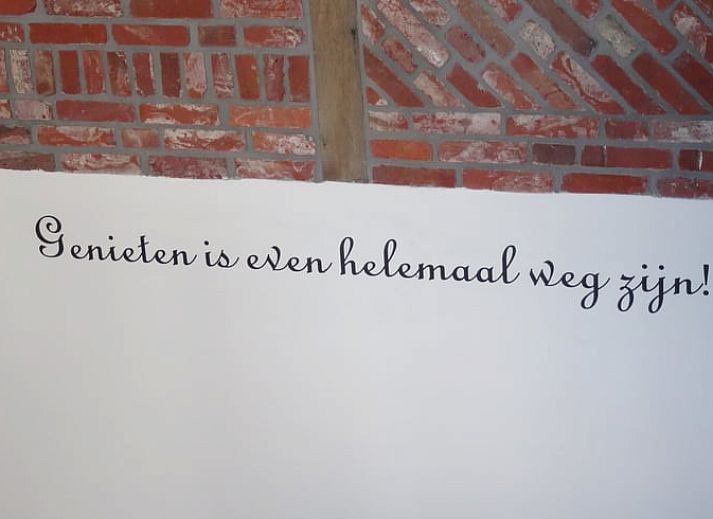 Genieten is even helemaal weg zijn!